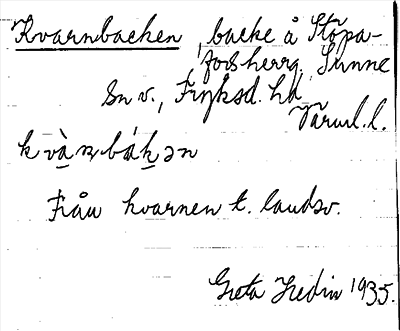 Kvarnbacken, backe å Stöpa-
forsherrg. Sunne
sn v., Fryksd. hd
Värml. l.
kvànbákən
Från kvarnen t. landsv.
Greta Hedin 1935.